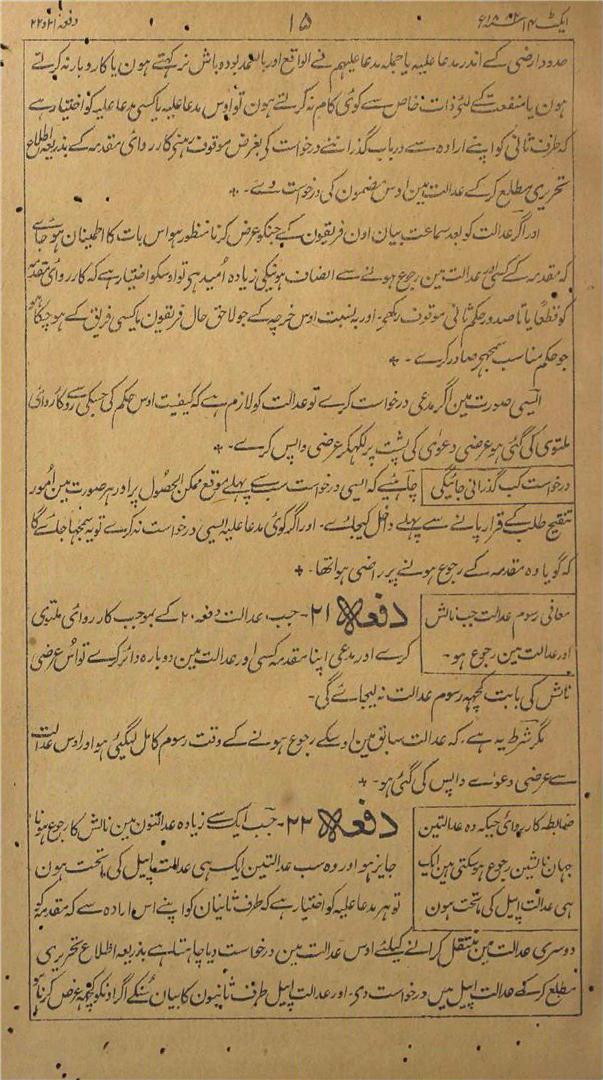 ایکٹ ۱۴ سنہ ۱۸۸۲ء
۱۵
دفعہ ۲۱ و ۲۲
حدود ارضی کے اندر مدعا علیہ یا جملہ مدعا علیہم فے الواقع اور بالعمد بودوباش نرکہتے ہون یا کاروبار نہ کرتے
ہون یا منفعت کے لئے ذات خاص سے کوئی کام نہ کرتے ہون تو اوس مدعا علیہ یا کسی مدعا علیہ کو اختیار ہے
کہ طرف ثانی کو اپنے ارادہ سے درباب گذراننے درخواست کی بغرض موقوف رہنے کارروائی مقدمہ کے بذریعہ اطلاع
تحریری مطلع کر کے عدالت مین اوس مضمون کی درخواست دے۔
اور اگر عدالت کو بعد سماعت بیان اون فریقون کے جنکو عرض کرنا منظور ہو اس بات کا اطمینان ہو جاے
کہ مقدمہ کے کسی اور عدالت مین رجوع ہونے سے انصاف ہونیکی زیادہ اُمید ہی تو اوسکو اختیار ہے کہ کارروائی مقدمہ
کو قطعًا یا تا صدور حکم ثانی موقوف رکھے۔ اور بہ نسبت اوس خرچہ کے جو لاحق حال فریقون یا کسی فریق کے ہو چکا ہو
جو حکم مناسب سمجہے صادر کرے۔
ایسی صورت مین اگر مدعی درخواست کرے تو عدالت کو لازم ہے کہ کیفیت اوس حکم کی جسکی رو سے کارروائی
ملتوی کی گئی ہو عرضی دعوٰی کی پشت پر لکہکر عرضی واپس کرے۔
درخواست کب گذرانی جائیگی
چاہئے کہ ایسی درخواست سب سے پہلے موقع ممکن الحصول پر اور ہر صورت مین امور
تنقیح طلب کے قرار پانے سے پہلے داخل کیجائے۔ اور اگر کوئی مدعا علیہ ایسی درخواست نہ کرے تو یہ سمجہا جائے گا
کہ گویا وہ مقدمہ کے رجوع ہونے پر راضی ہوا تھا۔
معافی رسوم عدالت جب نالش
اور عدالت مین رجوع ہو۔
دفعہ ۲۱۔ جب عدالت دفعہ ۲۰ کے بموجب کارروائی ملتوی
کرے اور مدعی اپنا مقدمہ کسی اور عدالت مین دوبارہ دائر کرے تو اُس عرضی
نالش کی بابت کچہہ رسوم عدالت نہ لیجائے گی۔
مگر شرط یہ ہے۔ کہ عدالت سابق مین اوسکے رجوع ہونے کے وقت رسوم کامل لیگئی ہو اور اوس عدالت
سے عرضی دعوے واپس کی گئی ہو۔
ضابطہ کارروائی جبکہ وہ عدالتین
جہان نالشین رجوع ہو سکتی ہین ایک
ہی عدالت اپیل کی ماتحت ہون
دفعہ ۲۲۔ جب ایک سے زیادہ عدالتون مین نالش کا رجوع ہونا
جایز ہو اور وہ سب عدالتین ایک ہی عدالت اپیل کی ماتحت ہون
تو ہر مدعا علیہ کو اختیار ہے کہ طرف ثانیان کو اپنے اس ارادہ سے کہ مقدمہ کو
دوسری عدالت مین منتقل کرانے کیلئے اوس عدالت مین درخواست دیا چاہتا ہے بذریعہ اطلاع تحریری
مطلع کر کے عدالت اپیل میں درخواست دی۔ اور عدالت اپیل طرف ثانیون کا بیان سُنکے اگر اونکو کچہہ عرض کرنا ہو